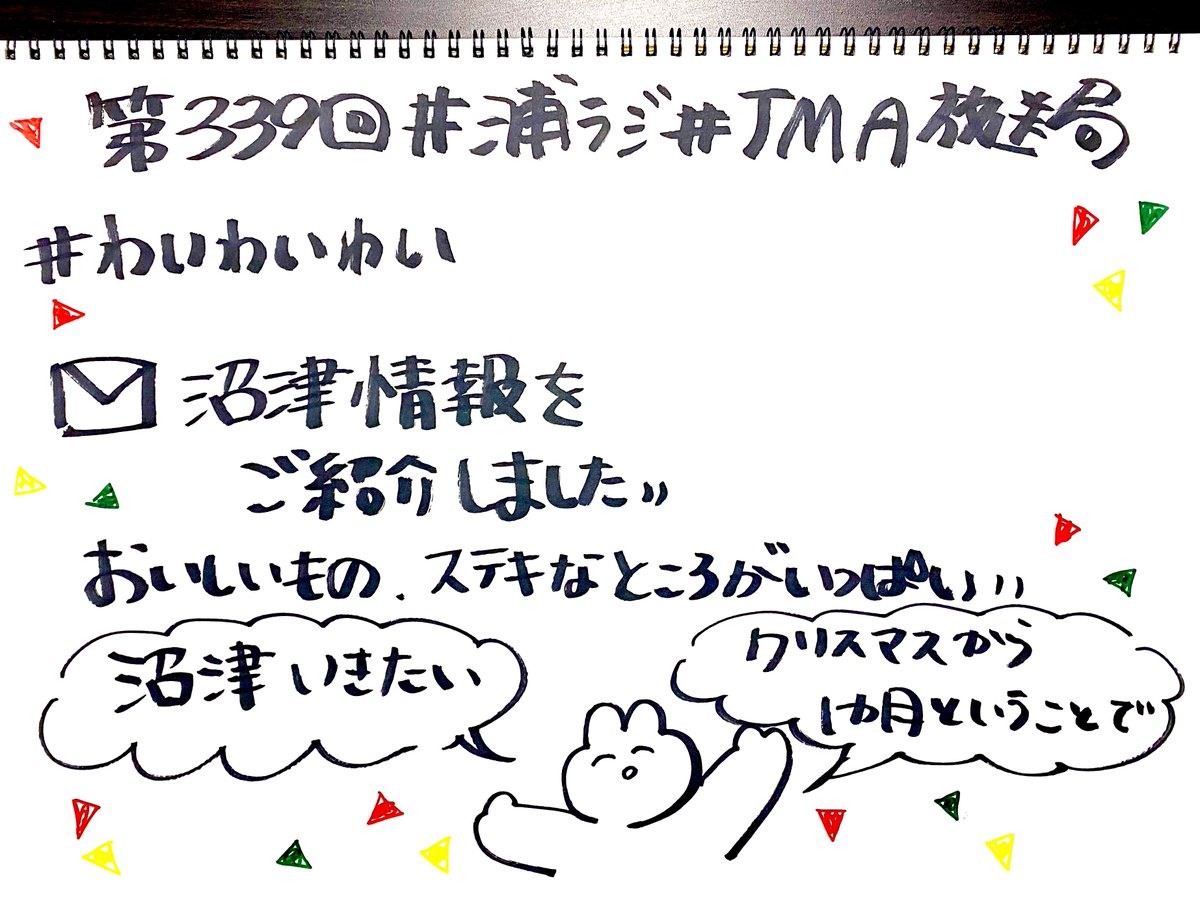 第339回#浦ラジ#JMA放送局
#わいわいわい
沼津情報を
ご紹介しました〃
おいしいもの、ステキなところがいっぱい〃
沼津いきたい
クリスマスから
1カ月ということで